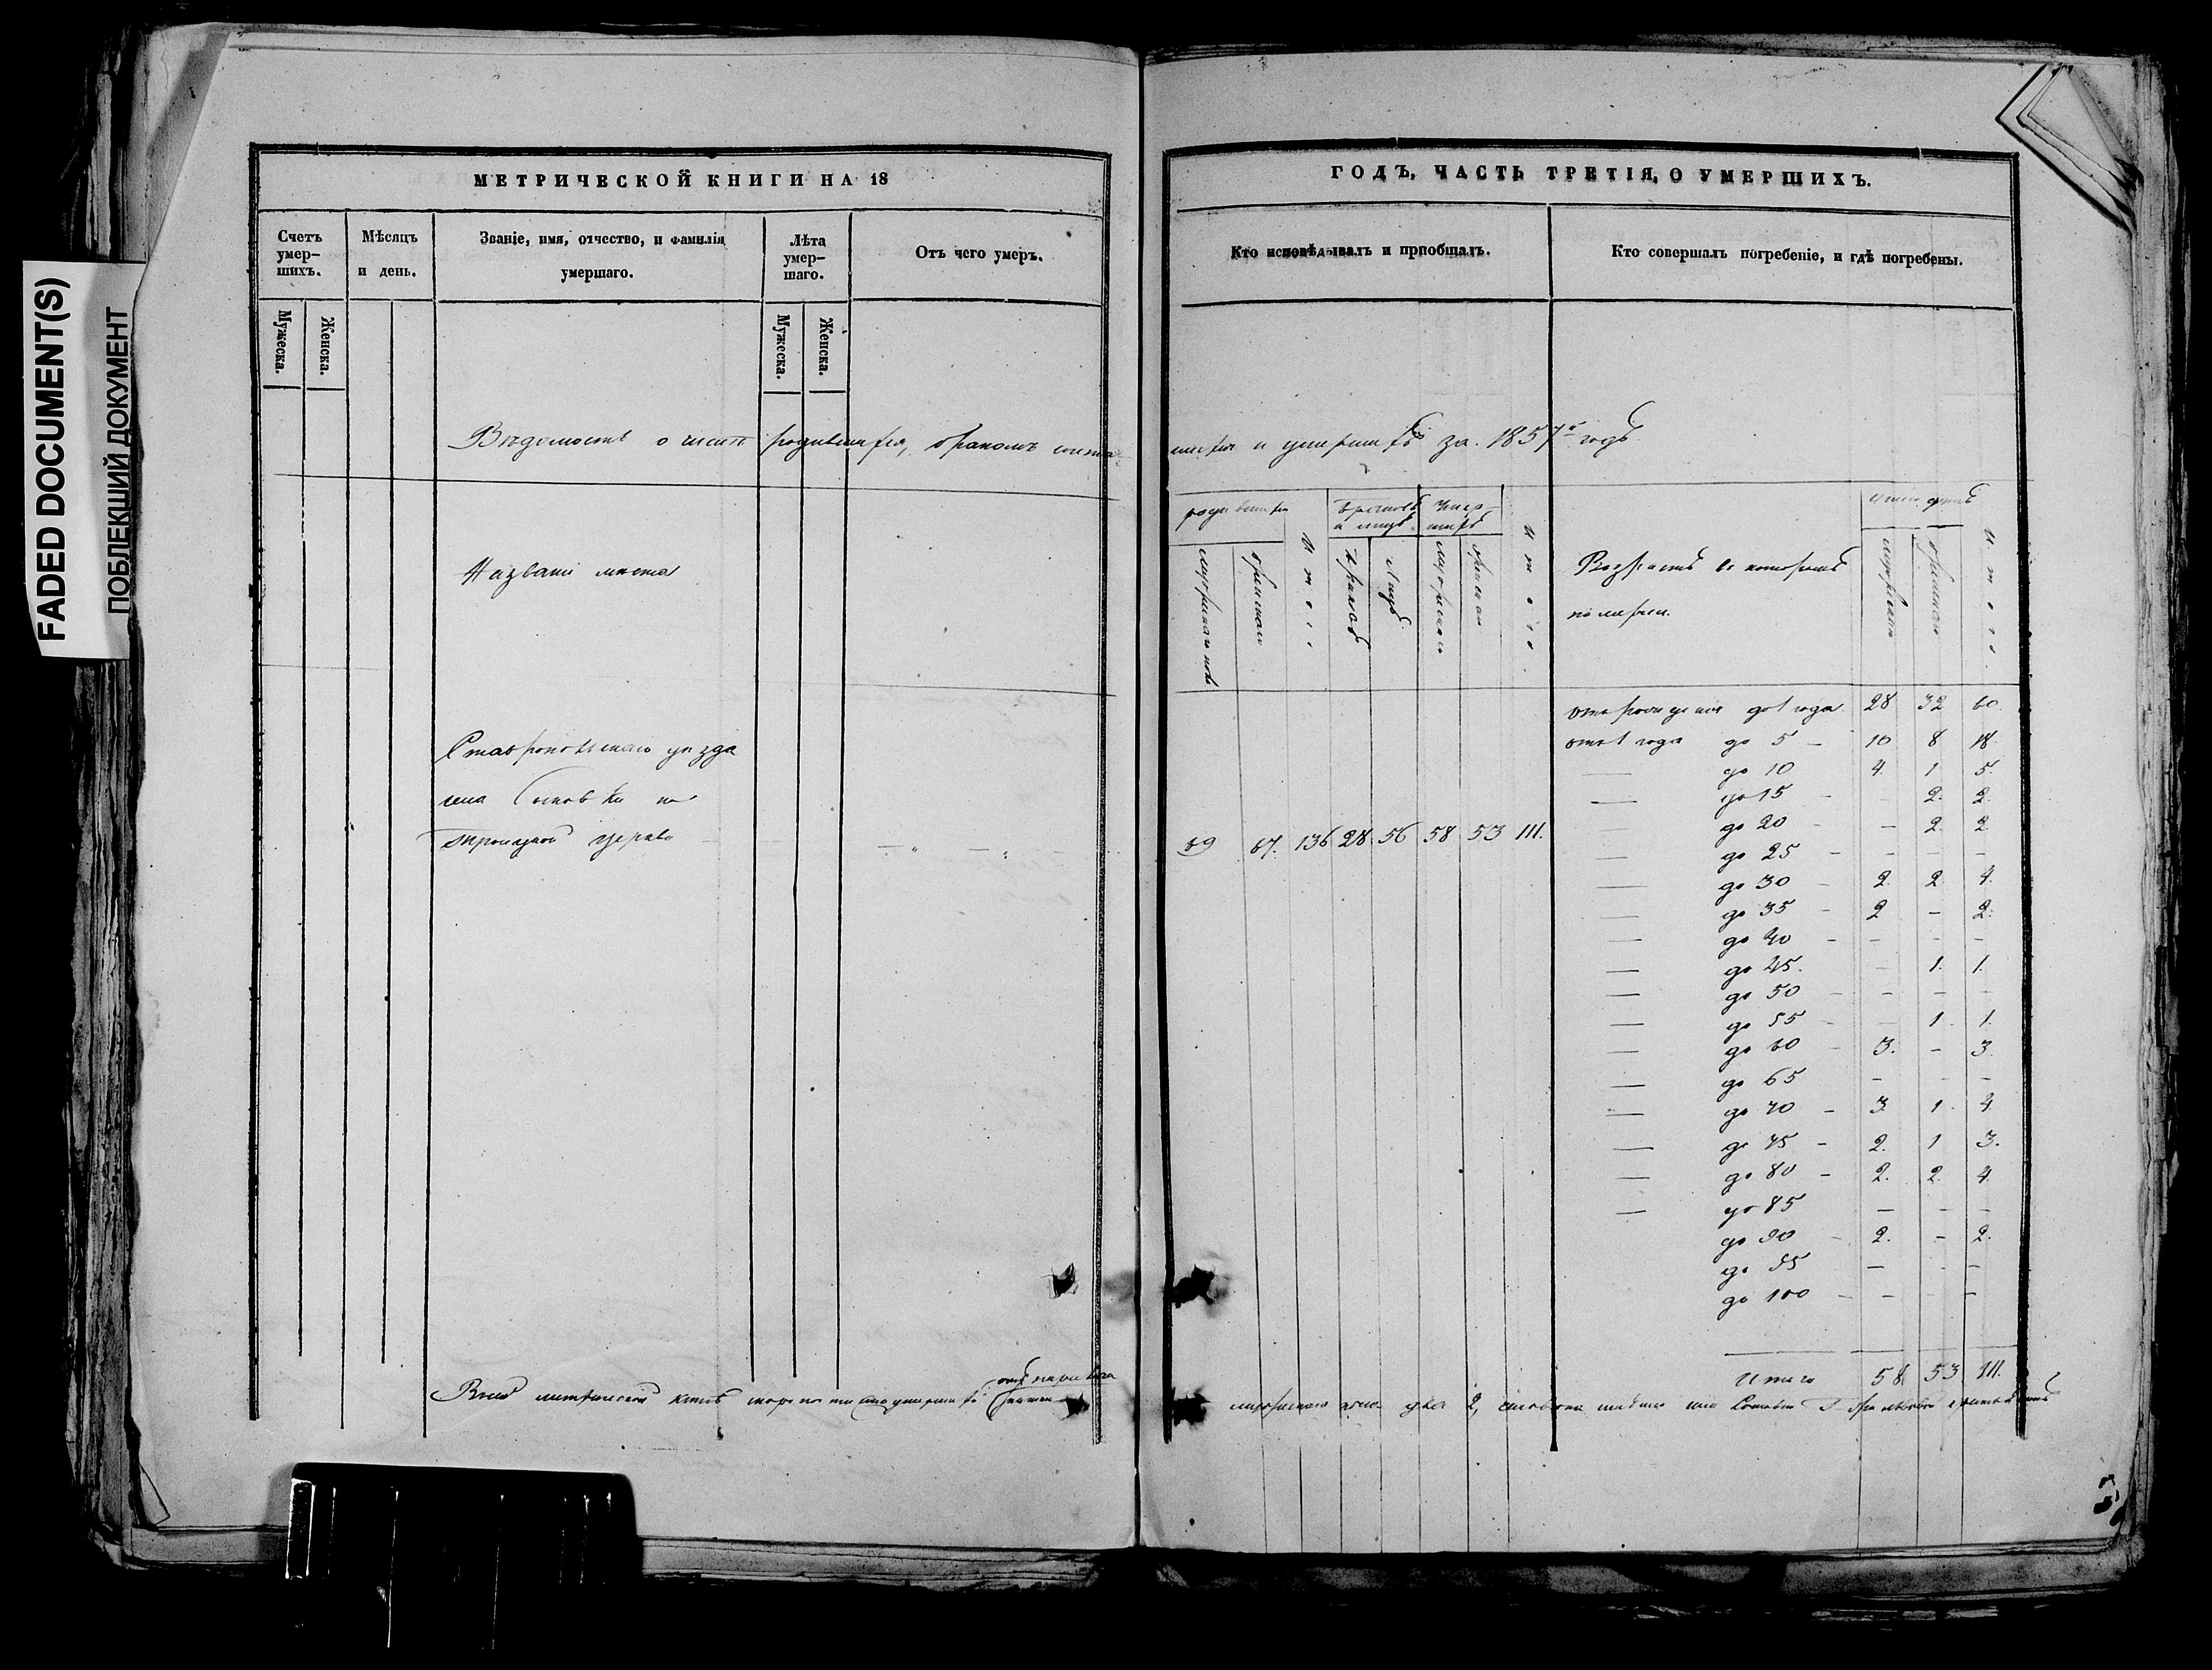 FADED DOCUMENT(S)
ПОБЛЕКШИЙ ДОКУМЕНТ
МЕТРИЧЕСКОЙ КНИГИ НА 18
Счетъ умер-шихъ.
Мѣсяцъ и день.
Званіе, имя, отчество, и фамилія умершаго.
Лѣта умер-шаго.
Отъ чего умеръ.
Мужеска.
Женска.
Мужеска.
Женска.
ГОДЪ, ЧАСТЬ ТРЕТІЯ, О УМЕРШИХЪ.
Кто исповѣдывалъ и пріобщалъ.
Кто совершалъ погребеніе, и гдѣ погребены.
Вѣдомость о числѣ родившихся, бракомъ сочета
шихся и умершихъ за 1857й годъ
Названіе мѣста
Ставропольскаго уѣзда
села
Троицкой церкви
родившихся
Итого
браковъ и лицъ
Умер-шихъ
Итого
мужескаго пола
женскаго
браковъ
Лицъ
мужескаго
женскаго
69 67. 136 28 56 58 53 111.
Возрастъ въ которомъ
померли.
Итого
мужескаго
женскаго
отъ рожденія до 1 года 28 32 60.
отъ 1 года до 5 – 10 8 18.
— до 10 4. 1 5.
— до 15 – – 2. 2.
до 20 – – 2. 2
— до 25 – – – –
— до 30 – 2. 2. 4.
— до 35 – 2 – 2.
— до 40 – – – –
— до 45. – 1. 1.
— до 50 – – – –
— до 55 – – 1. 1.
— до 60 – 3. – 3.
— до 65 – – –
— до 70 – 3 1. 4.
— до 75 – 2. 1 3.
— до 80 – 2. 2. 4.
— до 85 – – –
до 90 – 2. – 2.
до 95 – – –
до 100 – – – –
Итого 58. 53 111.
мужескаго пола два 2,